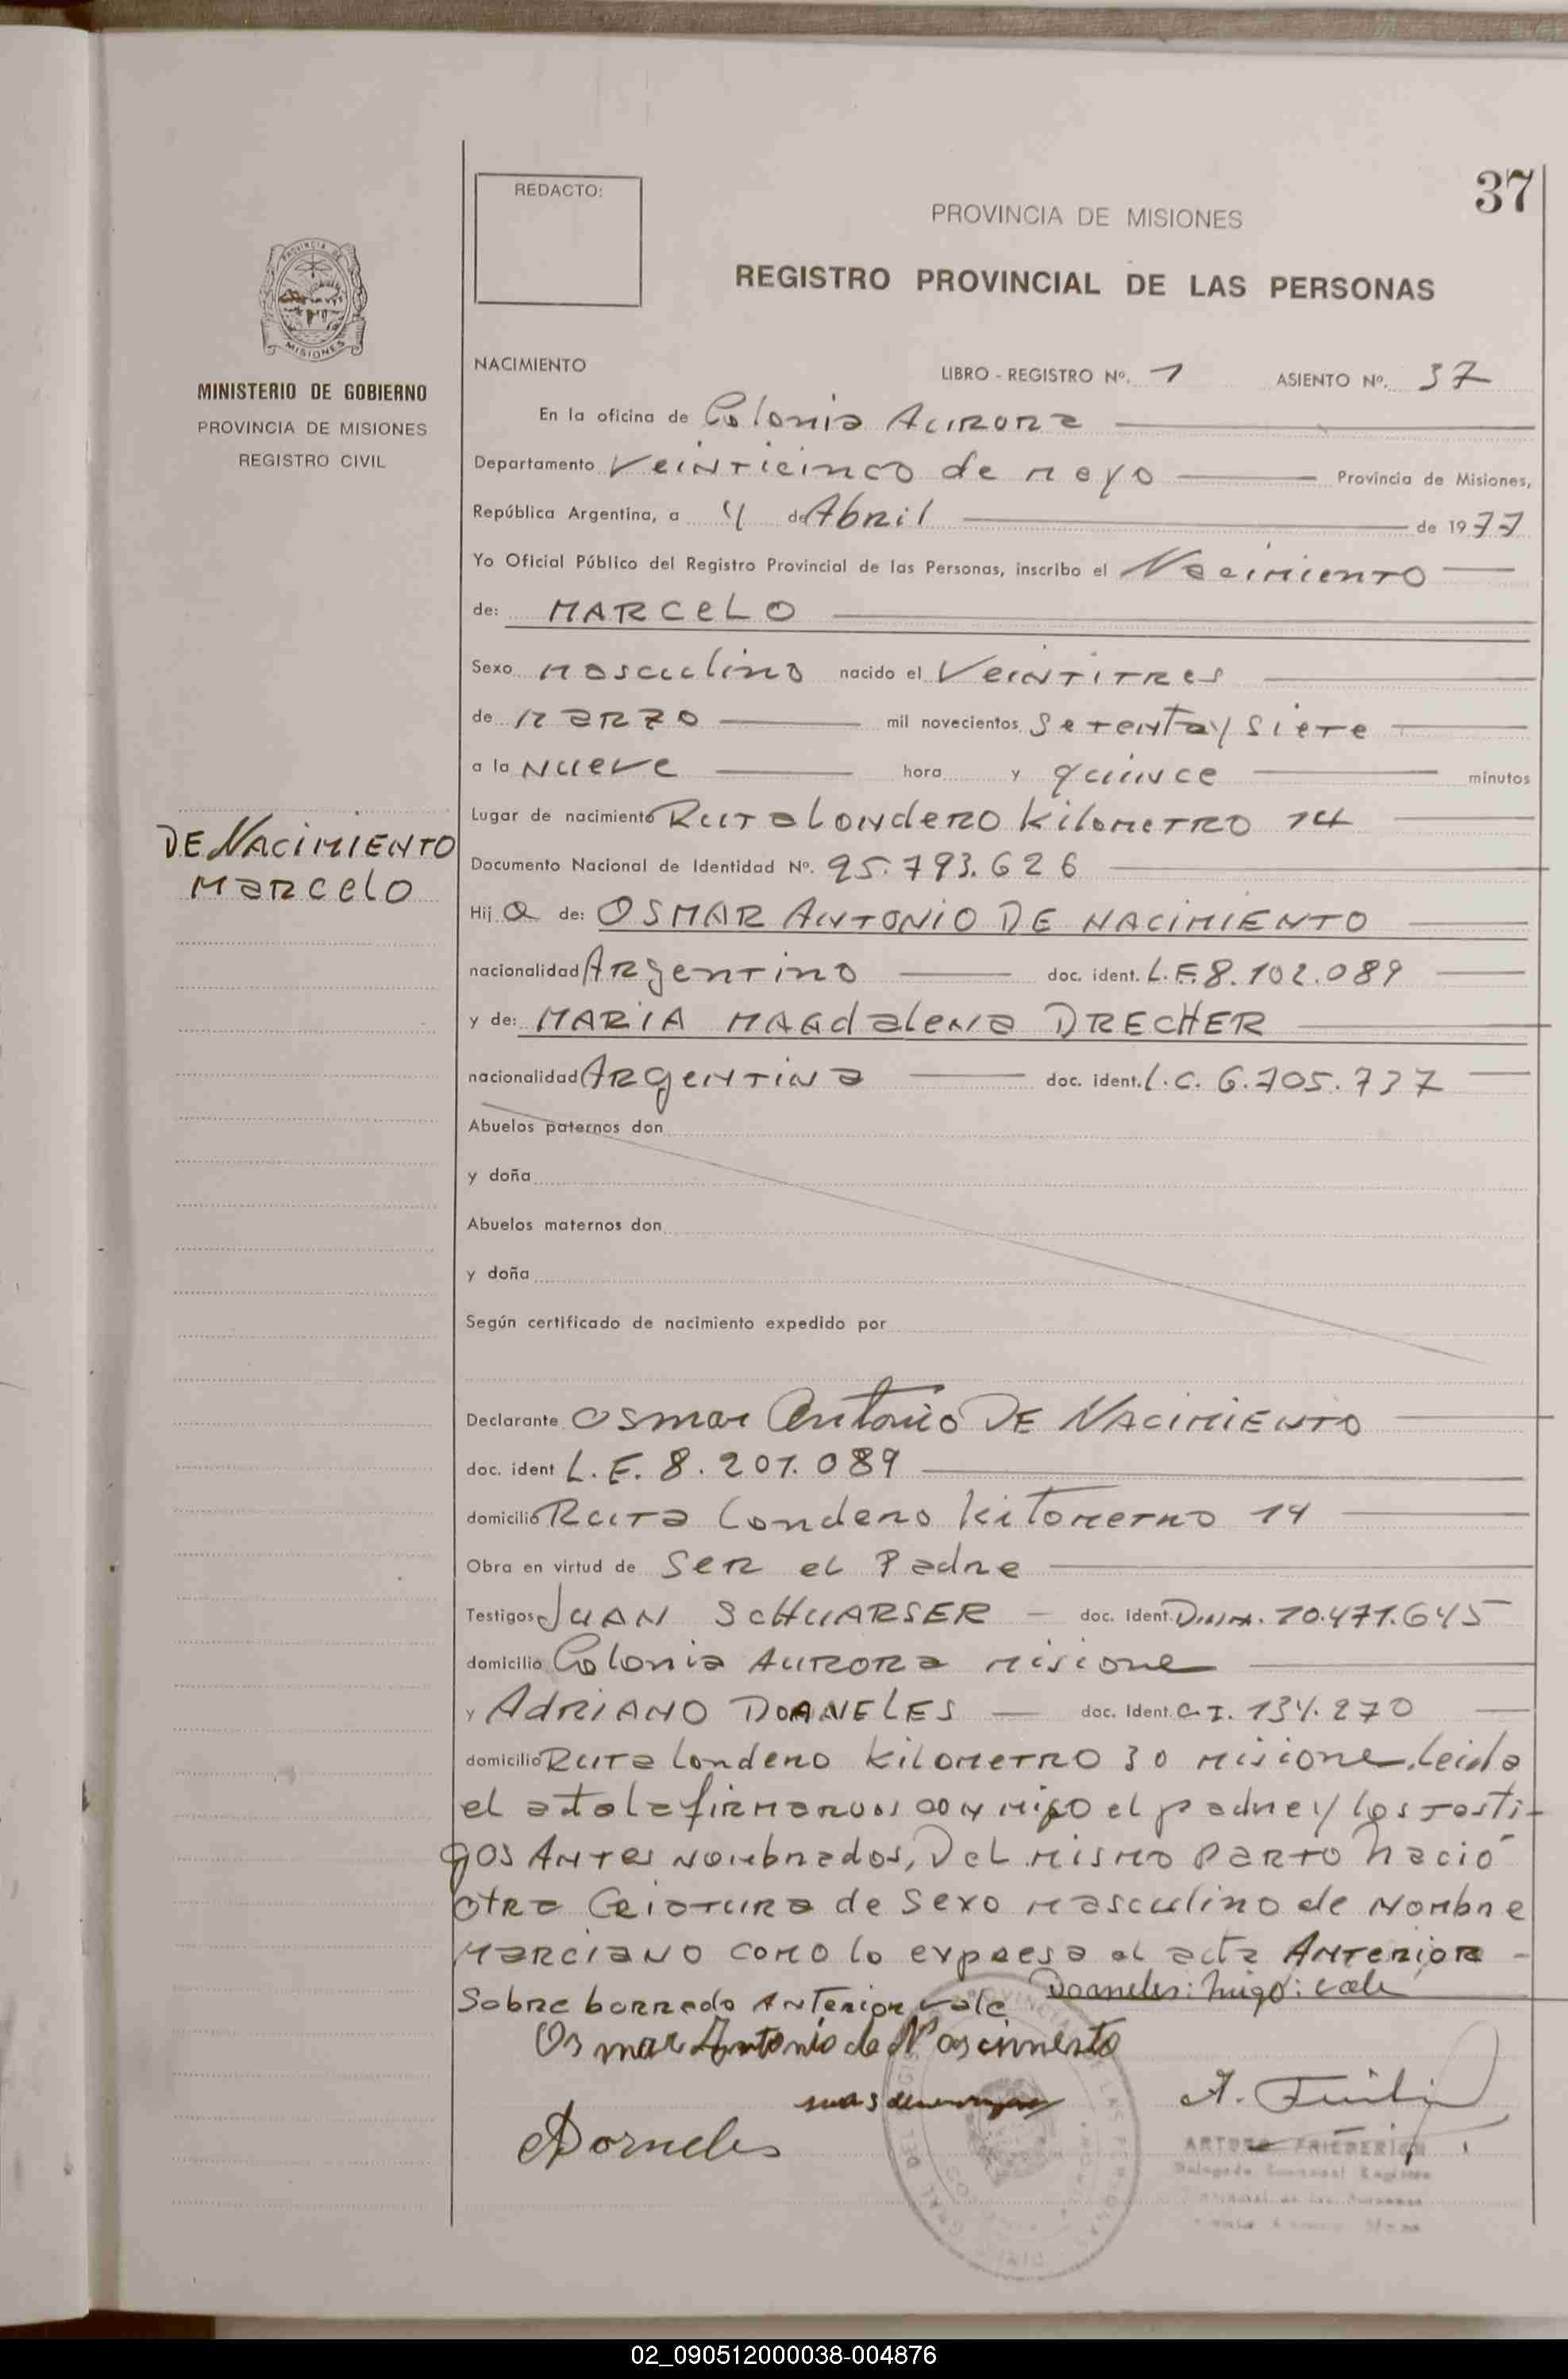 37
REDACTO:
PROVINCIA DE MISIONES
REGISTRO PROVINCIAL DE LAS PERSONAS
PROVINCIA DE
MISIONES
MINISTERIO DE GOBIERNO
PROVINCIA DE MISIONES
REGISTRO CIVIL
NACIMIENTO LIBRO - REGISTRO Nº. 1 ASIENTO Nº. 37
En la oficina de Colonia Aurora
Departamento Veinticinco de mayo Provincia de Misiones,
República Argentina, a 4 de Abril de 1977
Yo Oficial Público del Registro Provincial de las Personas, inscribo el Nacimiento
de: MARCELO
Sexo masculino nacido el Veintitres
de marzo mil novecientos setenta y siete
a la nueve hora y quince minutos
DE NACIMIENTO
Marcelo
Lugar de nacimiento Ruta Londero kilometro 14
Documento Nacional de Identidad Nº. 25.793.626
Hij o de: OSMAR ANTONIO DE NACIMIENTO
nacionalidad Argentino doc. ident. L.E. 8.102.089
y de: MARIA MAGdalena DRECHER
nacionalidad Argentina doc. ident. L.C. 6.705.737
Abuelos paternos don
y doña
Abuelos maternos don
y doña
Según certificado de nacimiento expedido por
Declarante Osmar Antonio DE NACIMIENTO
doc. ident L.E. 8.201.089
domicilio Ruta Londero kilometro 14
Obra en virtud de ser el Padre
Testigos JUAN SCHUARSER doc. Ident. 10.471.645
domicilio Colonia AURORA misione
y ADRIANO DOANELES doc. Ident. C.I. 134.270
domicilio Ruta Londero kilometro 30 misione. leida
el acta la firmaron conmigo el padre y los testi-
gos Antes nombrados, Del mismo parto nació
otra Criatura de sexo masculino de Nombre
Marciano como lo expresa el acta Anterior -
Sobre borrado Anterior vale Doaneles: migo: vale
Osmar Antonio de Nascimento
ADorneles
ARTURO FRIEDERICH
02_090512000038-004876